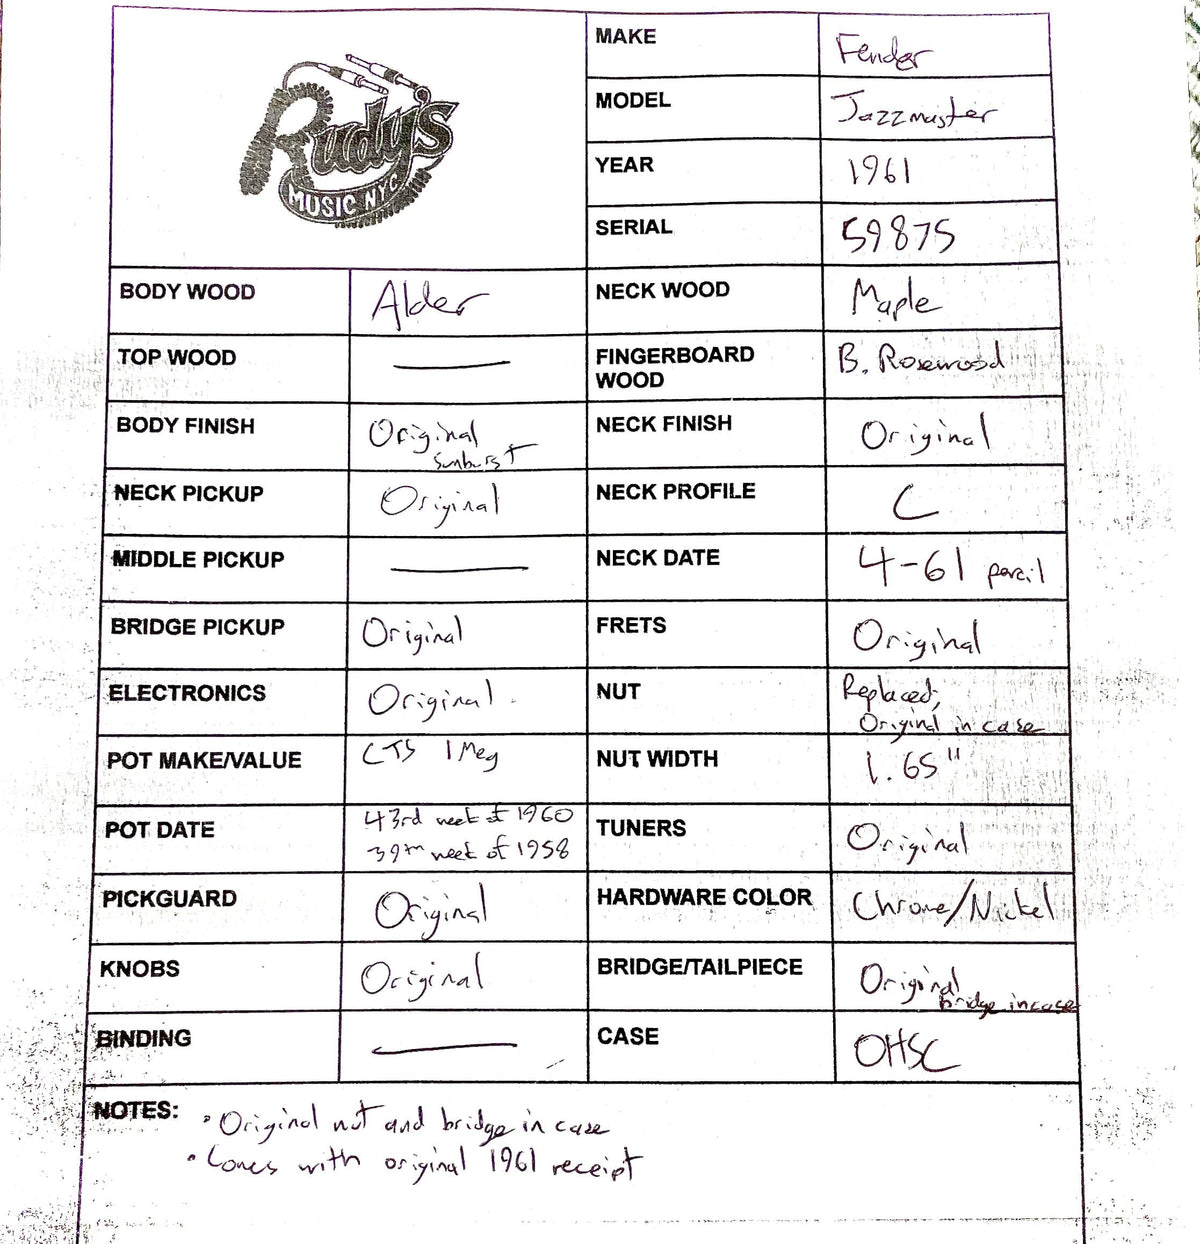 Rudy's
MUSIC NYC
MAKE Fender
MODEL Jazzmaster
YEAR 1961
SERIAL 59875
BODY WOOD Alder NECK WOOD Maple
TOP WOOD — FINGERBOARD WOOD B. Rosewood
BODY FINISH Original sunburst NECK FINISH Original
NECK PICKUP Original NECK PROFILE C
MIDDLE PICKUP — NECK DATE 4-61 pencil
BRIDGE PICKUP Original FRETS Original
ELECTRONICS Original NUT Replaced, Original in case
POT MAKE/VALUE CTS 1Meg NUT WIDTH 1.65"
POT DATE 43rd week of 1960 39th week of 1958 TUNERS Original
PICKGUARD Original HARDWARE COLOR Chrome/Nickel
KNOBS Original BRIDGE/TAILPIECE Original bridge in case
BINDING — CASE OHSC
NOTES: • Original nut and bridge in case
• Comes with original 1961 receipt